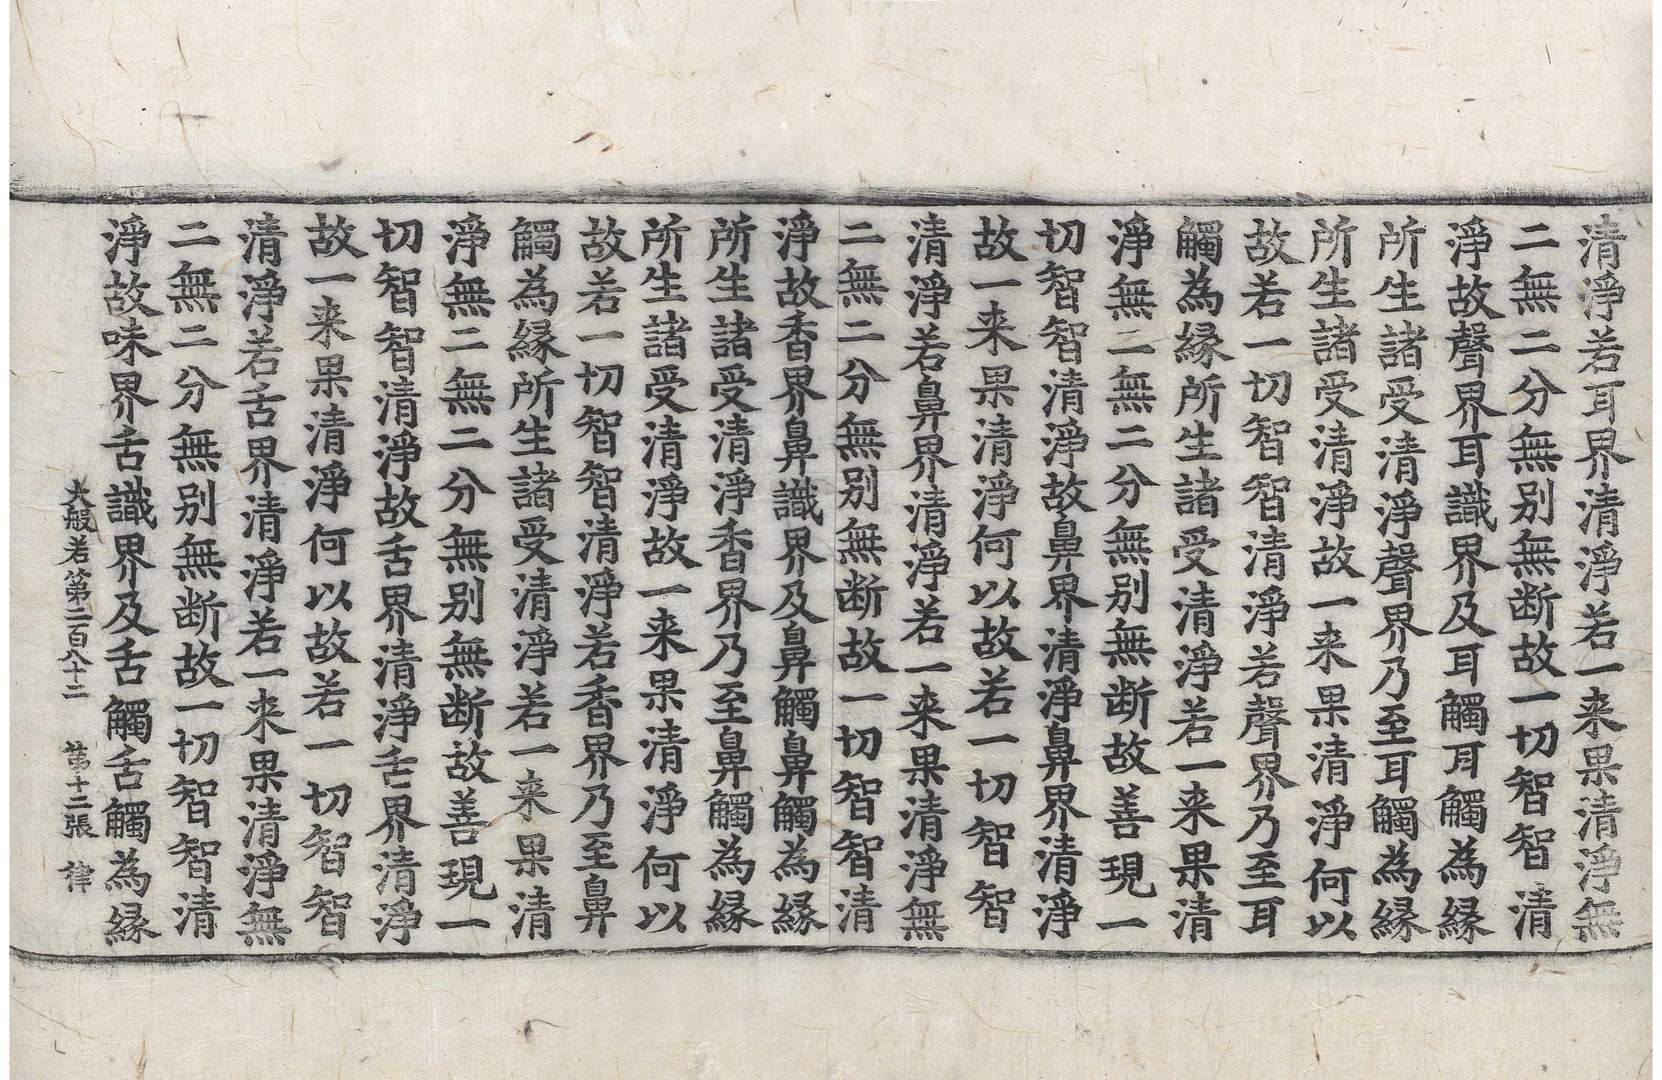 清淨若耳界清淨若一来果清淨無
二無二分無别無断故一切智智清
淨故聲界耳識界及耳觸耳觸為縁
所生諸受清淨聲界乃至耳觸為縁
所生諸受清淨故一来果清淨何以
故若一切智智清淨若聲界乃至耳
觸為縁所生諸受清淨若一来果清
淨無二無二分無别無断故善現一
切智智清淨故鼻界清淨鼻界清淨
故一来果清淨何以故若一切智智
清淨若鼻界清淨若一来果清淨無
二無二分無别無断故一切智智清
淨故香界鼻識界及鼻觸鼻觸為縁
所生諸受清淨香界乃至鼻觸為縁
所生諸受清淨故一来果清淨何以
故若一切智智清淨若香界乃至鼻
觸為縁所生諸受清淨若一来果清
淨無二無二分無别無断故善現一
切智智清淨故舌界清淨舌界清淨
故一来果清淨何以故若一切智智
清淨若舌界清淨若一来果清淨無
二無二分無别無断故一切智智清
淨故味界舌識界及舌觸舌觸為縁
大般若第二百八十二 第十二張 律